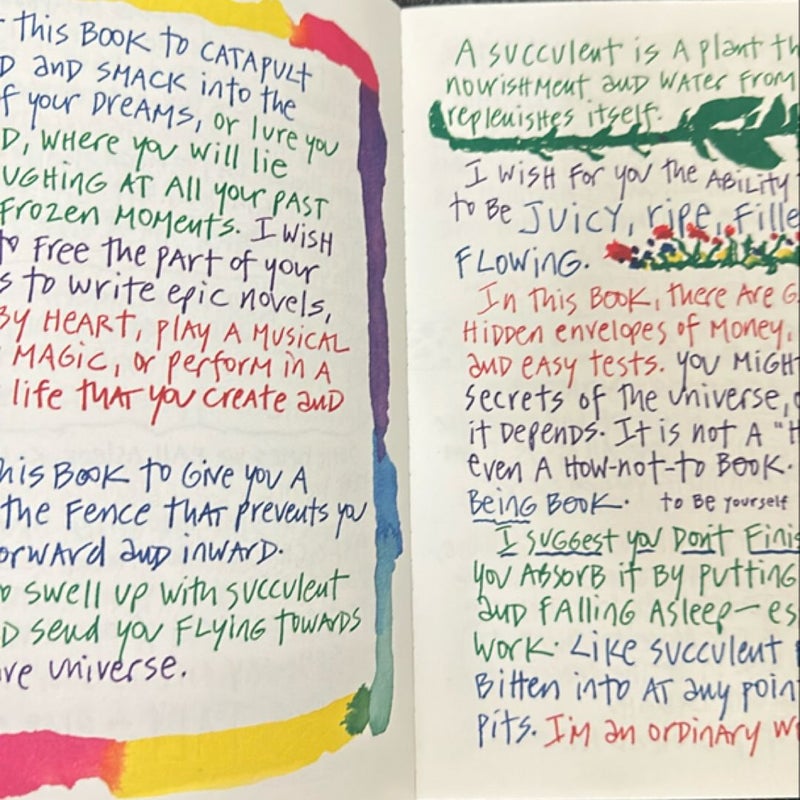 this BOOK to CATAPULT
D and SMACK into the
f your DREAMS, or lure you
D, WHERE you will lie
UGHING AT All your PAST
FROZEN MOMENTS. I WISH
to FREE the PART of your
s to write epic novels,
By HEART, PLAY A MUSICAL
MAGIC, or perform in A
life THAT you CREATE and
his BOOK to GIVE you A
the FENCE THAT prevents you
orward and inward.
o swell up with succulent
D send you FLYING TOWARDS
ve universe.
A succulent is A plant th
nourishment and WATER FROM
replenishes itself.
I WISH FOR you the ABILITY
to BE JUICY, ripe, Fille
FLOWING.
In this BOOK, there ARE G
HIDDEN envelopes of Money,
and EASY tests. you MIGHT
secrets of the universe, o
it DEPENDS. It is not A "H
even A HOW-not-to BOOK.
BEING BOOK. to BE yourself
I suggest you Don't Finis
you ABSORB it BY putting
and FAlling Asleep— es
work. Like succulent
Bitten into AT any poin
pits. I'm an ordinary w